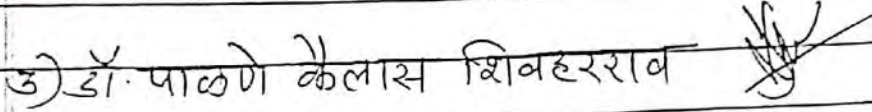 ३) डॉ. पाळणे कैलास शिवहरराव